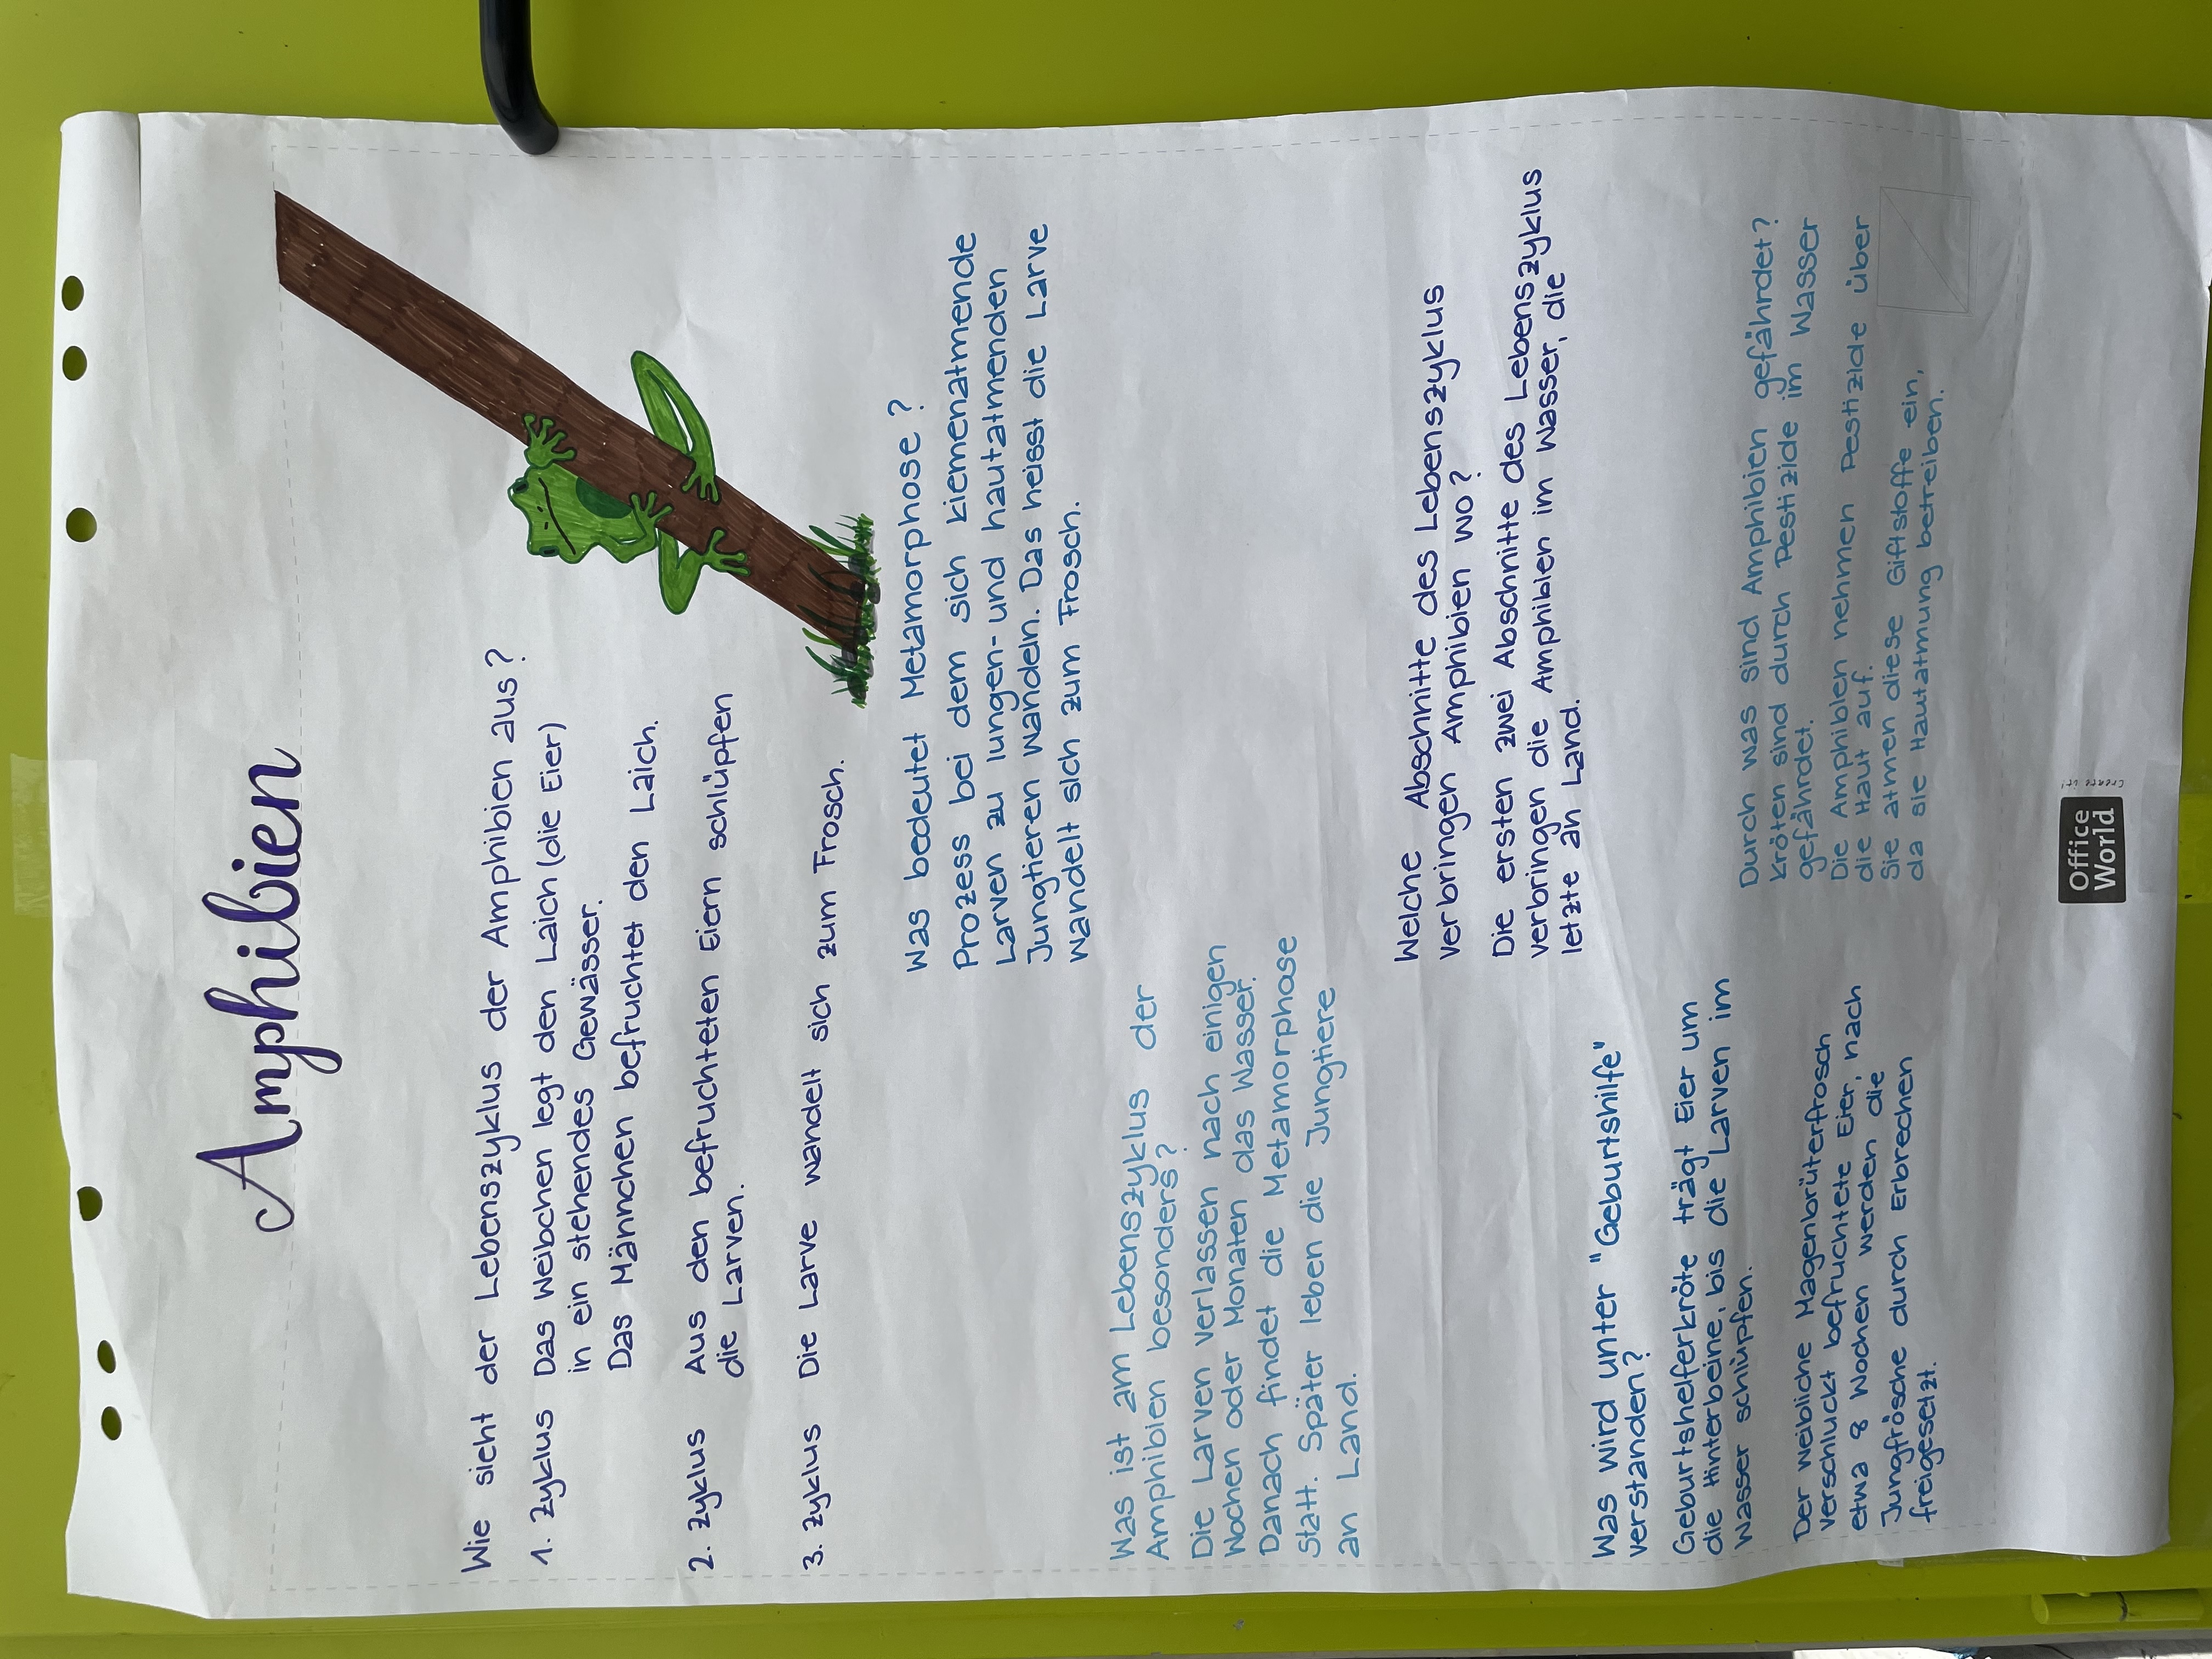 Amphibien
Wie sieht der Lebenszyklus der Amphibien aus?
1. Zyklus Das Weibchen legt den Laich (die Eier)
in ein stehendes Gewässer.
Das Männchen befruchtet den Laich.
2. Zyklus Aus den befruchteten Eiern schlüpfen
die Larven.
3. Zyklus Die Larve wandelt sich zum Frosch.
Was bedeutet Metamorphose?
Prozess bei dem sich kiemenatmende
Larven zu lungen- und hautatmenden
Jungtieren wandeln. Das heisst die Larve
wandelt sich zum Frosch.
Was ist am Lebenszyklus der
Amphibien besonders?
Die Larven verlassen nach einigen
Wochen oder Monaten das Wasser.
Danach findet die Metamorphose
statt. Später leben die Jungtiere
an Land.
Welche Abschnitte des Lebenszyklus
verbringen Amphibien wo?
Die ersten zwei Abschnitte des Lebenszyklus
verbringen die Amphibien im Wasser, die
letzte an Land.
Was wird unter "Geburtshilfe"
verstanden?
Geburtshelferkröte trägt Eier um
die Hinterbeine, bis die Larven im
Wasser schlüpfen.
Der weibliche Magenbrüterfrosch
verschluckt befruchtete Eier, nach
etwa 8 Wochen werden die
Jungfrösche durch Erbrechen
freigesetzt.
Durch was sind Amphibien gefährdet?
Kröten sind durch Pestizide im Wasser
gefährdet.
Die Amphibien nehmen Pestizide über
die Haut auf.
Sie atmen diese Giftstoffe ein,
da sie Hautatmung betreiben.
Office
World
Create it!